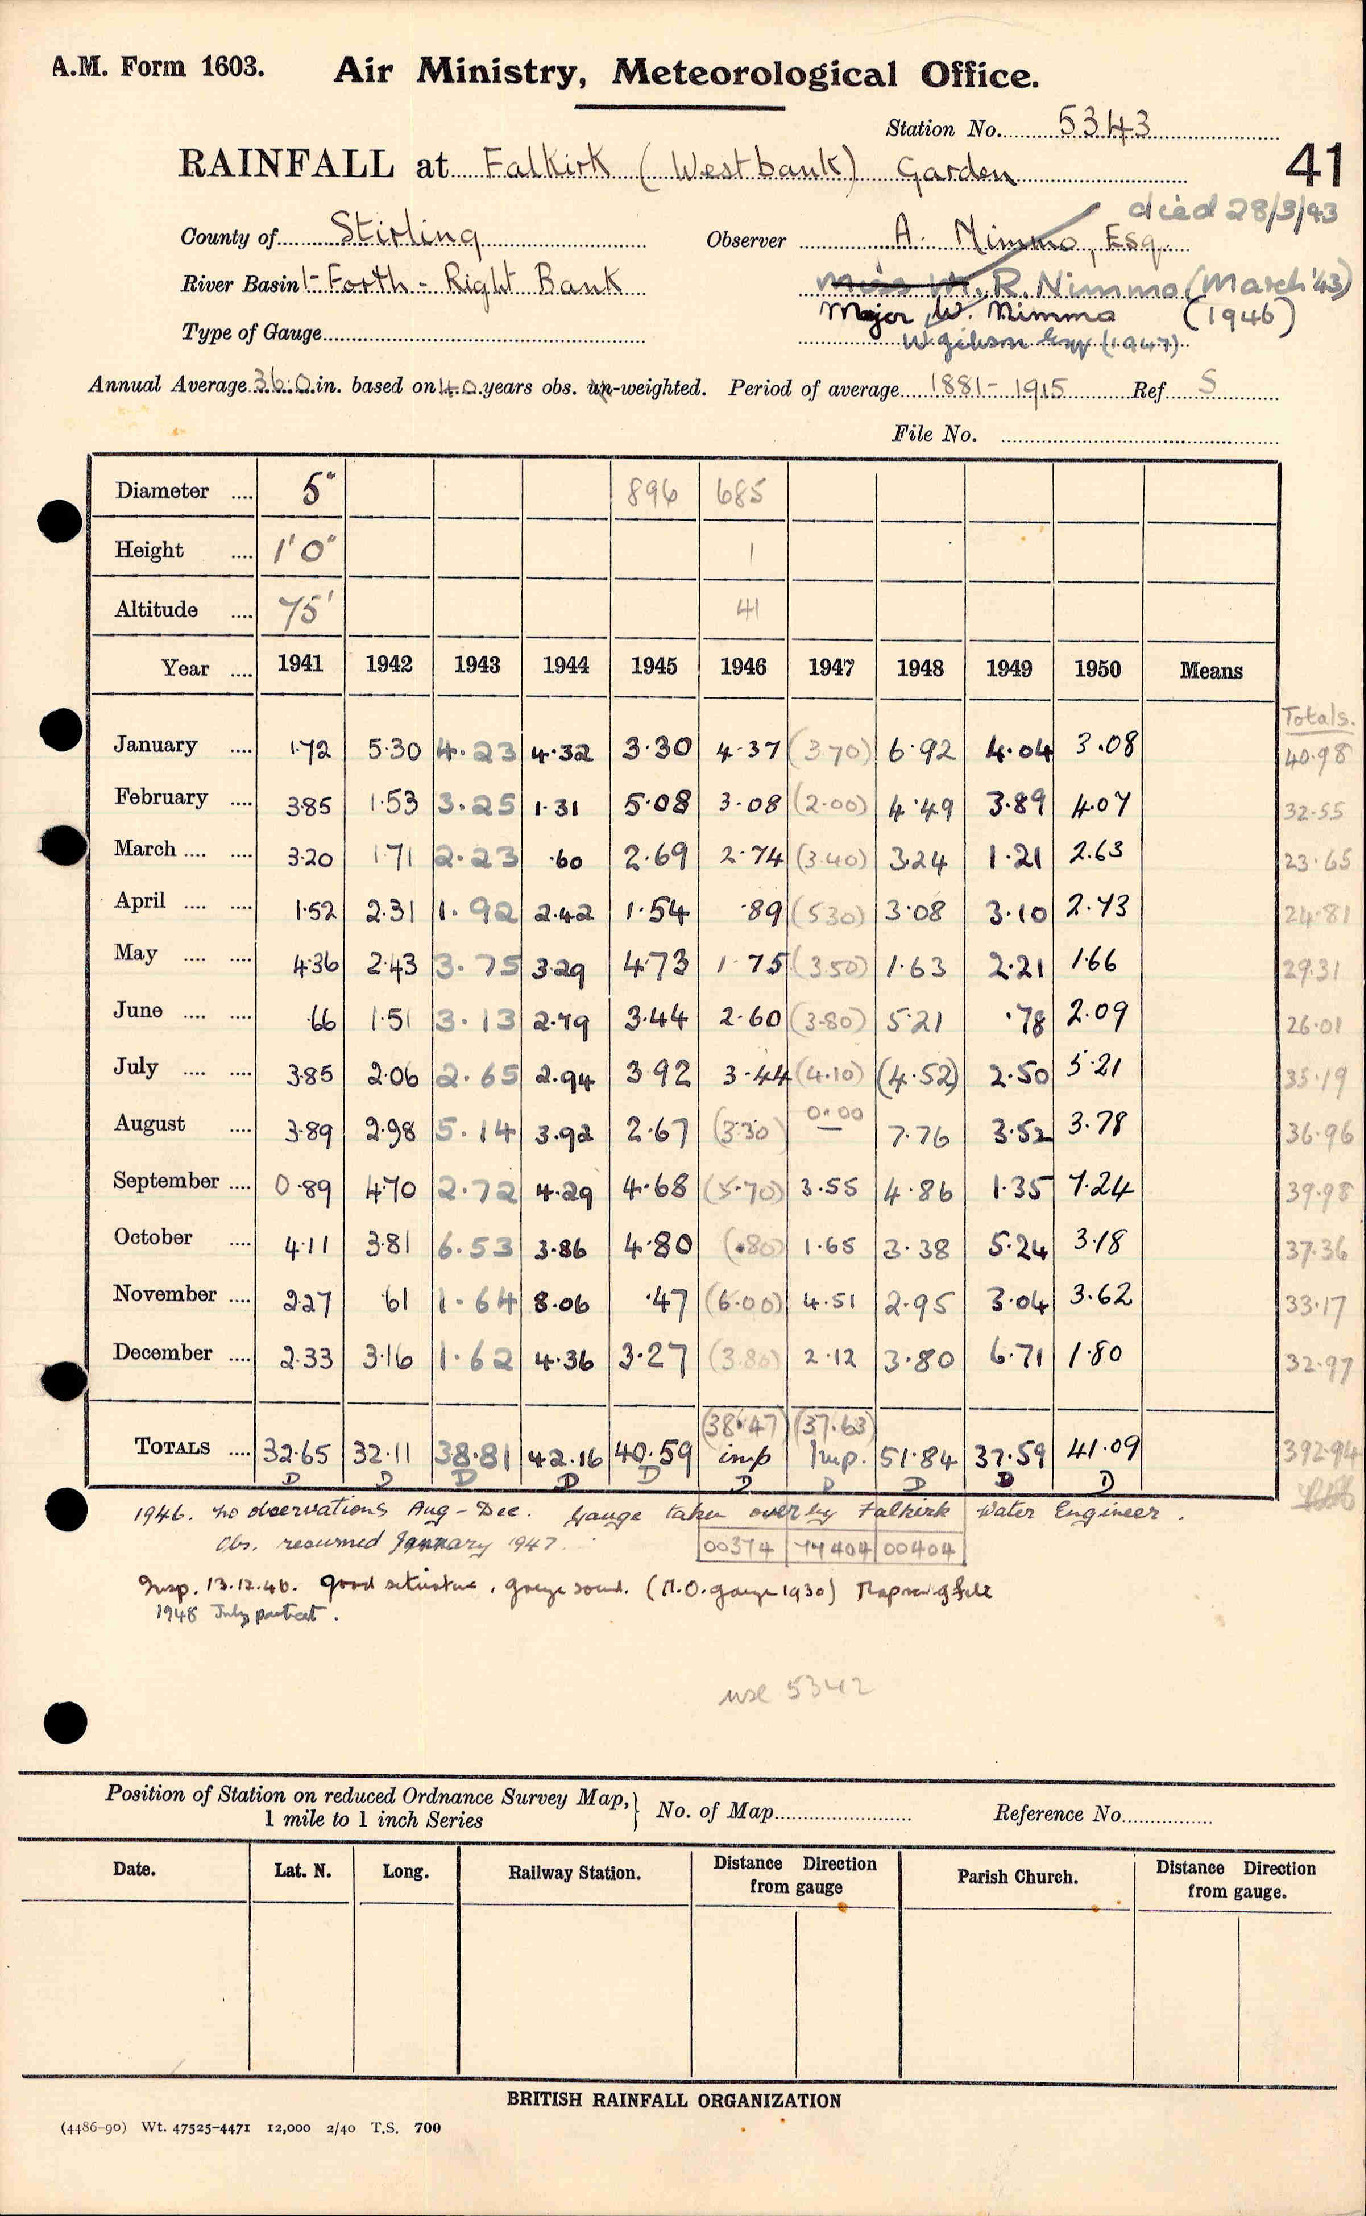 A.M. Form 1603. Air Ministry, Meteorological Office.
Station No. 5343
RAINFALL at Falkirk (Westbank) Garden 41
died 28/3/43
County of Stirling Observer A. Nimmo, Esq.
River Basin Forth - Right Bank Miss M. R. Nimmo (March '43)
Major W. Nimmo (1946)
Type of Gauge W. Gibson Esq (1947)
Annual Average 36.0 in. based on 40 years obs. un-weighted. Period of average 1881-1915 Ref S
File No.
Diameter 5" 896 685
Height 1'0" 1
Altitude 75' 41
Year 1941 1942 1943 1944 1945 1946 1947 1948 1949 1950 Means
Totals.
January 1.72 5.30 4.23 4.32 3.30 4.37 (3.70) 6.92 4.04 3.08 40.98
February 3.85 1.53 3.25 1.31 5.08 3.08 (2.00) 4.49 3.89 4.07 32.55
March 3.20 1.71 2.23 .60 2.69 2.74 (3.40) 3.24 1.21 2.63 23.65
April 1.52 2.31 1.92 2.42 1.54 .89 (5.30) 3.08 3.10 2.73 24.81
May 4.36 2.43 3.75 3.29 4.73 1.75 (3.50) 1.63 2.21 1.66 29.31
June .66 1.51 3.13 2.79 3.44 2.60 (3.80) 5.21 .78 2.09 26.01
July 3.85 2.06 2.65 2.94 3.92 3.44 (4.10) (4.52) 2.50 5.21 35.19
August 3.89 2.98 5.14 3.92 2.67 (3.30) 0.00 — 7.76 3.52 3.78 36.96
September 0.89 4.70 2.72 4.29 4.68 (5.70) 3.55 4.86 1.35 7.24 39.98
October 4.11 3.81 6.53 3.86 4.80 (.80) 1.65 3.38 5.24 3.18 37.36
November 2.27 .61 1.64 8.06 .47 (6.00) 4.51 2.95 3.04 3.62 33.17
December 2.33 3.16 1.62 4.36 3.27 (3.80) 2.12 3.80 6.71 1.80 32.97
(38.47) (37.63)
TOTALS 32.65 32.11 38.81 42.16 40.59 imp Imp. 51.84 37.59 41.09 392.94
D D D D D D D D D D
1946. no observations Aug - Dec. Gauge taken over by Falkirk Water Engineer.
Obs. resumed January 1947. 00374 74404 00404
Insp. 13.12.46. Good situation, gauge sound. (M.O. gauge 1930)
1948 July
use 5342
Position of Station on reduced Ordnance Survey Map,
1 mile to 1 inch Series
No. of Map Reference No.
Date. Lat. N. Long. Railway Station. Distance Direction from gauge Parish Church. Distance Direction from gauge.
BRITISH RAINFALL ORGANIZATION
(4486-90) Wt. 47525-4471 12,000 2/40 T.S. 700